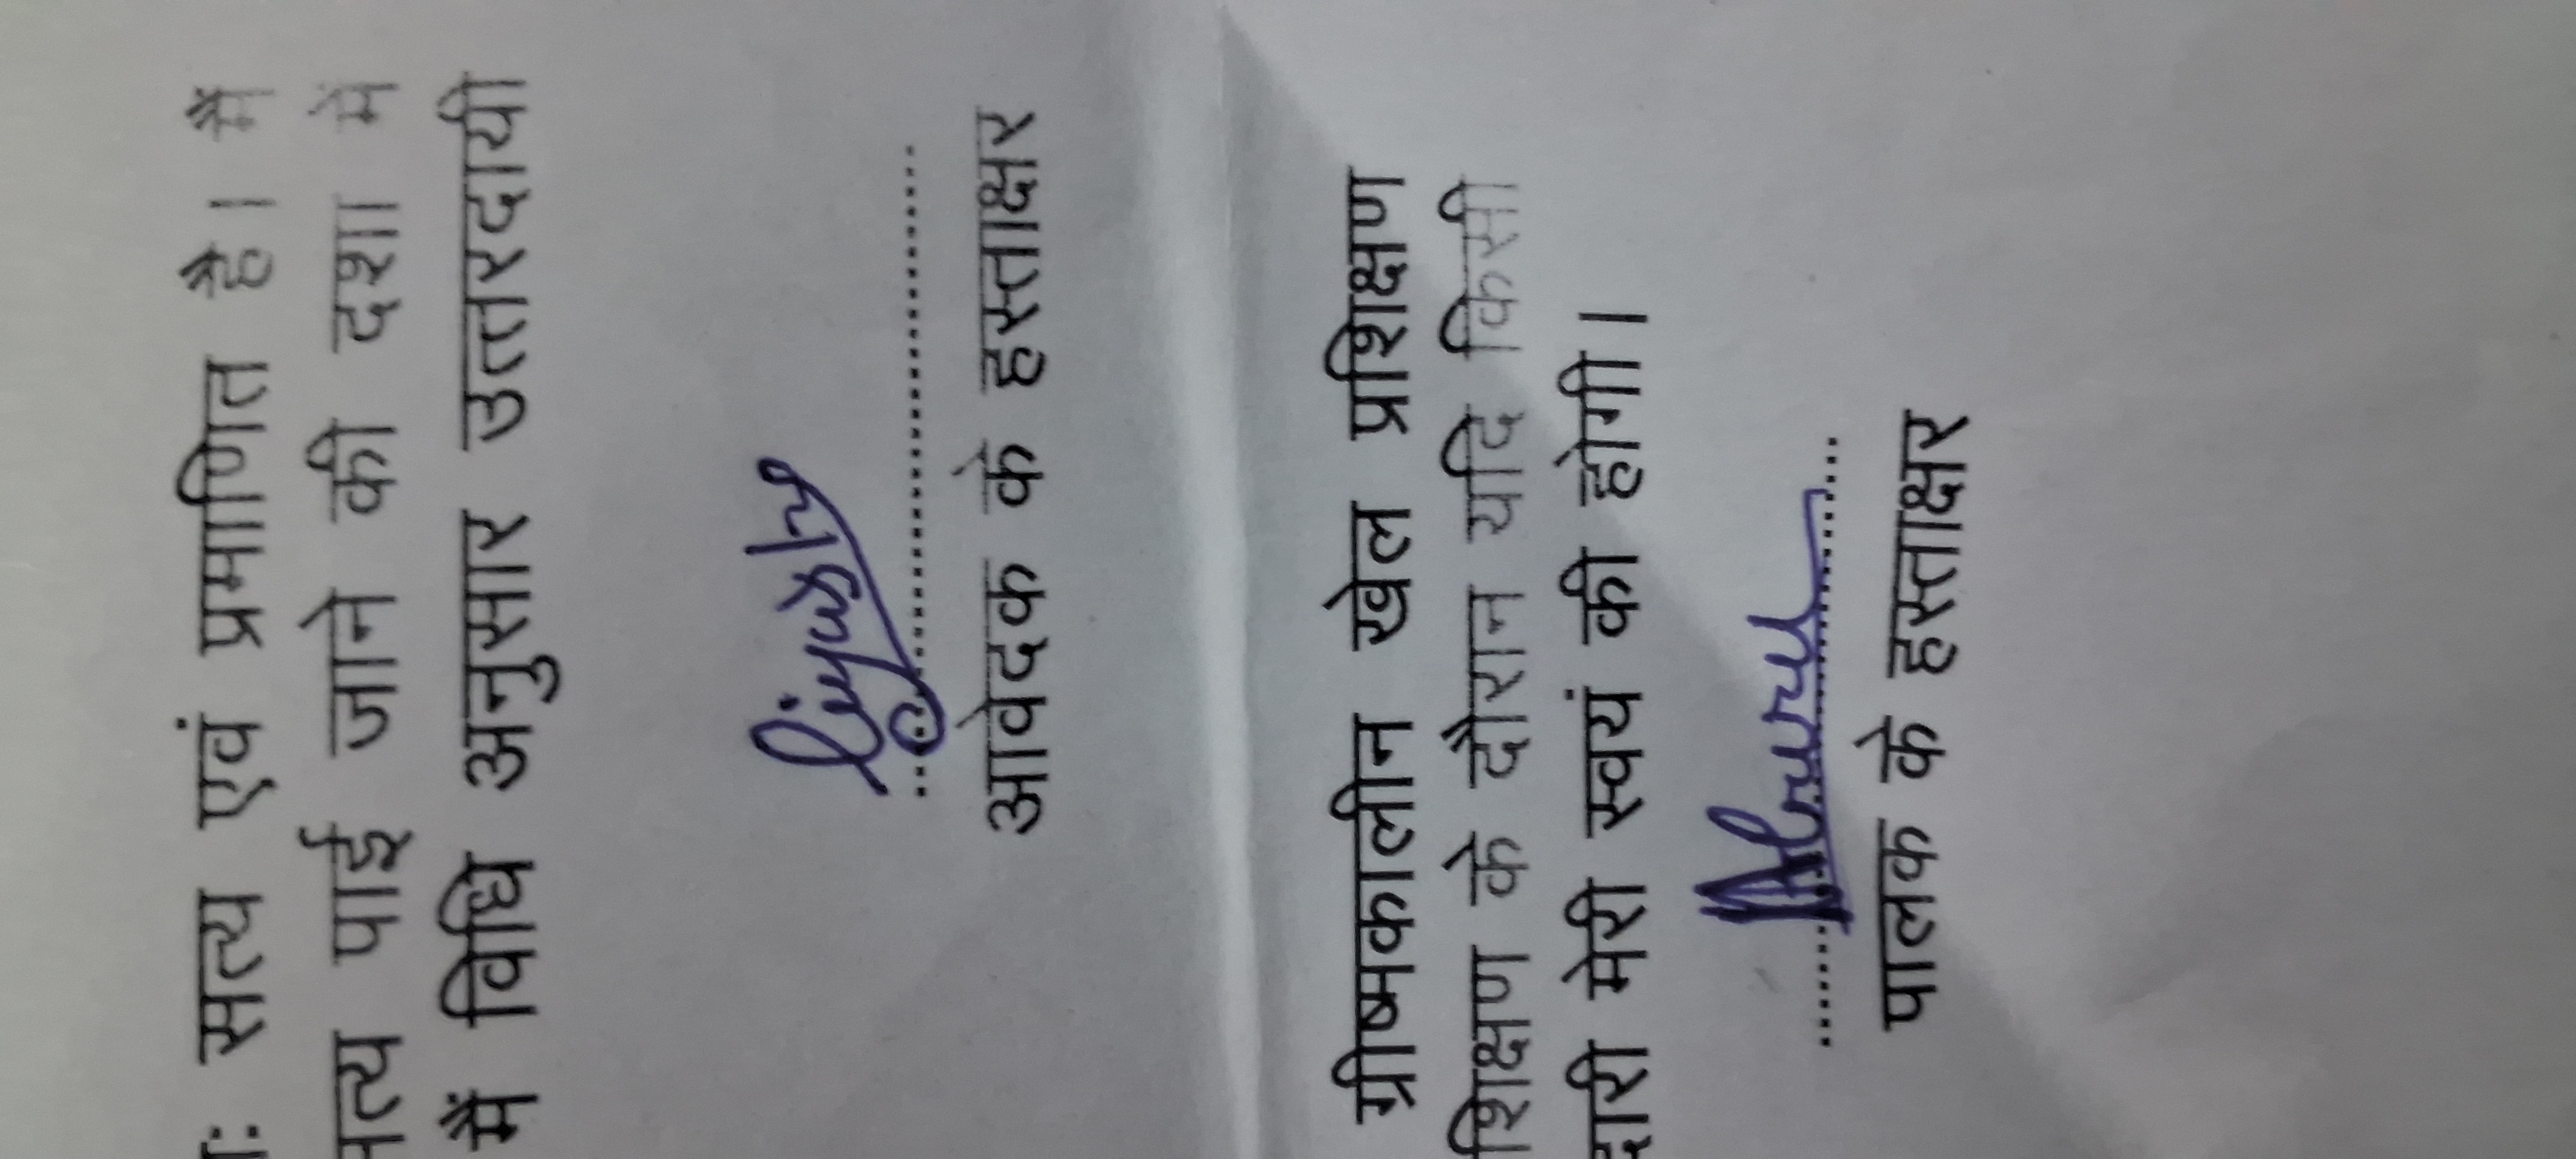 ः सत्य एवं प्रमाणित है। मैं
सत्य पाई जाने की दशा में
में विधि अनुसार उत्तरदायी
आवेदक के हस्ताक्षर
ग्रीष्मकालीन खेल प्रशिक्षण
शिक्षण के दौरान यदि किसी
दारी मेरी स्वयं की होगी।
पालक के हस्ताक्षर